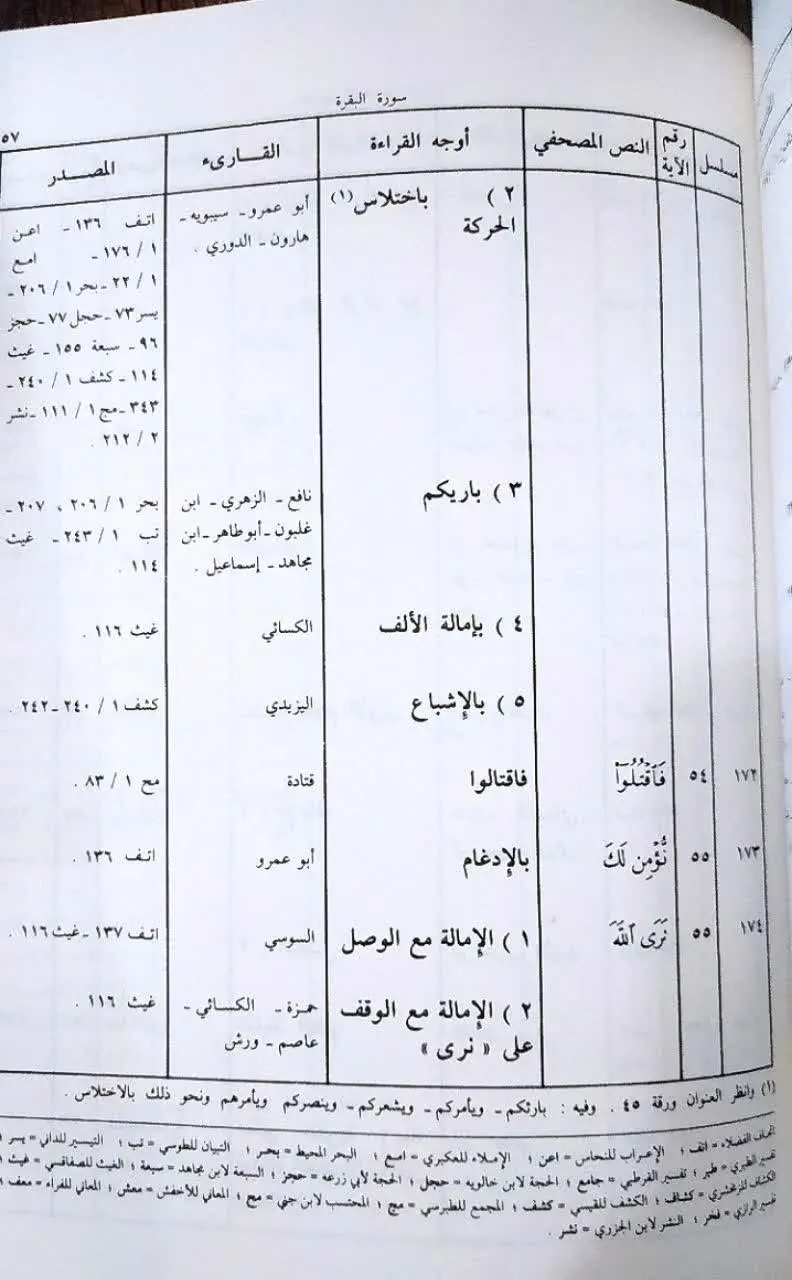 سورة البقرة
٥٧
مسلسل | رقم الآية | النص المصحفي | أوجه القراءة | القـارىء | المصـدر
٢ ) باختلاس(١) الحركة | أبو عمرو ـ سيبويه ـ هارون ـ الدوري . | اتف ١٣٦ ـ اعن ١ / ١٧٦ ـ امع ١ / ٢٢ ـ بحر ١ / ٢٠٦ ـ يسر ٧٣ ـ حجل ٧٧ ـ حجز ٩٦ ـ سبعة ١٥٥ ـ غيث ١١٤ ـ كشف ١ / ٢٤٠ ـ ٣٤٣ ـ مج ١ / ١١١ ـ نشر ٢ / ٢١٢ .
٣ ) باريكم | نافع ـ الزهري ـ ابن غلبون ـ أبو طاهر ـ ابن مجاهد ـ إسماعيل . | بحر ١ / ٢٠٦ ، ٢٠٧ ـ تب ١ / ٢٤٣ ـ غيث ١١٤ .
٤ ) بإمالة الألف | الكسائي | غيث ١١٦ .
٥ ) بالإشباع | اليزيدي | كشف ١ / ٢٤٠ ـ ٢٤٢ .
١٧٢ | ٥٤ | فَٱقْتُلُوٓا۟ | فاقتالوا | قتادة | مح ١ / ٨٣ .
١٧٣ | ٥٥ | نُّؤْمِن لَكَ | بالإدغام | أبو عمرو | اتف ١٣٦ .
١٧٤ | ٥٥ | نَرَى ٱللَّهَ | ١ ) الإمالة مع الوصل | السوسي | اتف ١٣٧ ـ غيث ١١٦ .
٢ ) الإمالة مع الوقف على « نرى » | حمزة ـ الكسائي ـ عاصم ـ ورش | غيث ١١٦ .
(١) وانظر العنوان ورقة ٤٥ . وفيه : بارئكم ـ ويأمركم ـ ويشعركم ـ وينصركم ويأمرهم ونحو ذلك بالاختلاس .
إتحاف الفضلاء = اتف ؛ الإعراب للنحاس = اعن ؛ الإملاء للعكبري = امع ؛ البحر المحيط = بحر ؛ التبيان للطوسي = تب ؛ التيسير للداني = يسر
تفسير الطبري = طبر ؛ تفسير القرطبي = جامع ؛ الحجة لابن خالويه = حجل ؛ الحجة لأبي زرعه = حجز ؛ السبعة لابن مجاهد = سبعة ؛ الغيث للصفاقسي = غيث
الكشاف للزمخشري = كشاف ؛ الكشف للقيسي = كشف ؛ المجمع للطبرسي = مج ؛ المحتسب لابن جني = مح ؛ المعاني للأخفش = معش ؛ المعاني للفراء = معف
تفسير الرازي = فخر ؛ النشر لابن الجزري = نشر .